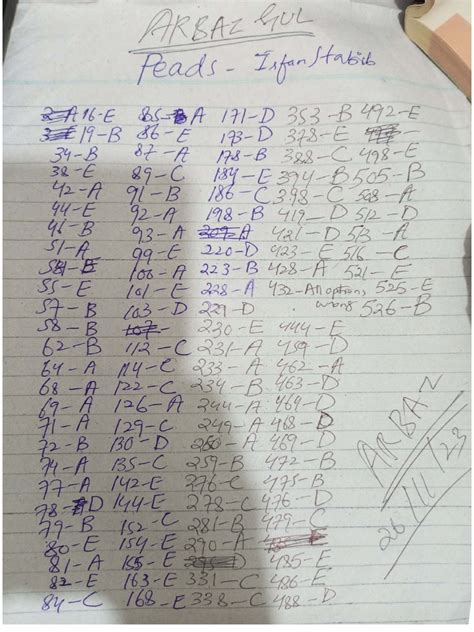 ARBAZ GUL
Peads - Irfan Habib
16-E 85-A 171-D 353-B 492-E
19-B 86-E 173-D 378-E
34-B 87-A 178-B 388-C 498-E
38-E 89-C 184-E 394-B 505-B
42-A 91-B 186-C 398-C 508-A
44-E 92-A 198-B 419-D 512-D
46-B 93-A 209-A 421-D 513-A
51-A 99-E 220-D 423-E 516-C
54-E 100-A 223-B 428-A 521-E
55-E 101-E 228-A 432-All options wrong 525-E
57-B 103-D 229-D 526-B
58-B 107- 230-E 444-E
62-B 112-C 231-A 459-D
64-A 114-C 233-A 462-A
68-A 122-C 234-B 463-D
69-A 126-A 244-A 464-D
71-A 129-C 249-A 468-D
72-B 130-D 250-A 469-D
74-A 135-C 259-B 472-B
77-A 142-E 276-C 475-B
78-D 144-E 278-C 476-D
79-B 152-C 281-B 479-C
80-E 154-E 290-A
81-A 155-E 485-E
82-E 163-E 331-C 486-E
84-C 168-E 338-C 488-D
ARBAZ
26/11/23